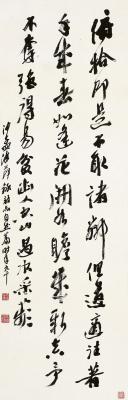 俯拾即是不取諸鄰俱道適往著
手成春如逢花開如瞻歲新真予
不奪強得易貧幽人空山過水采蘋